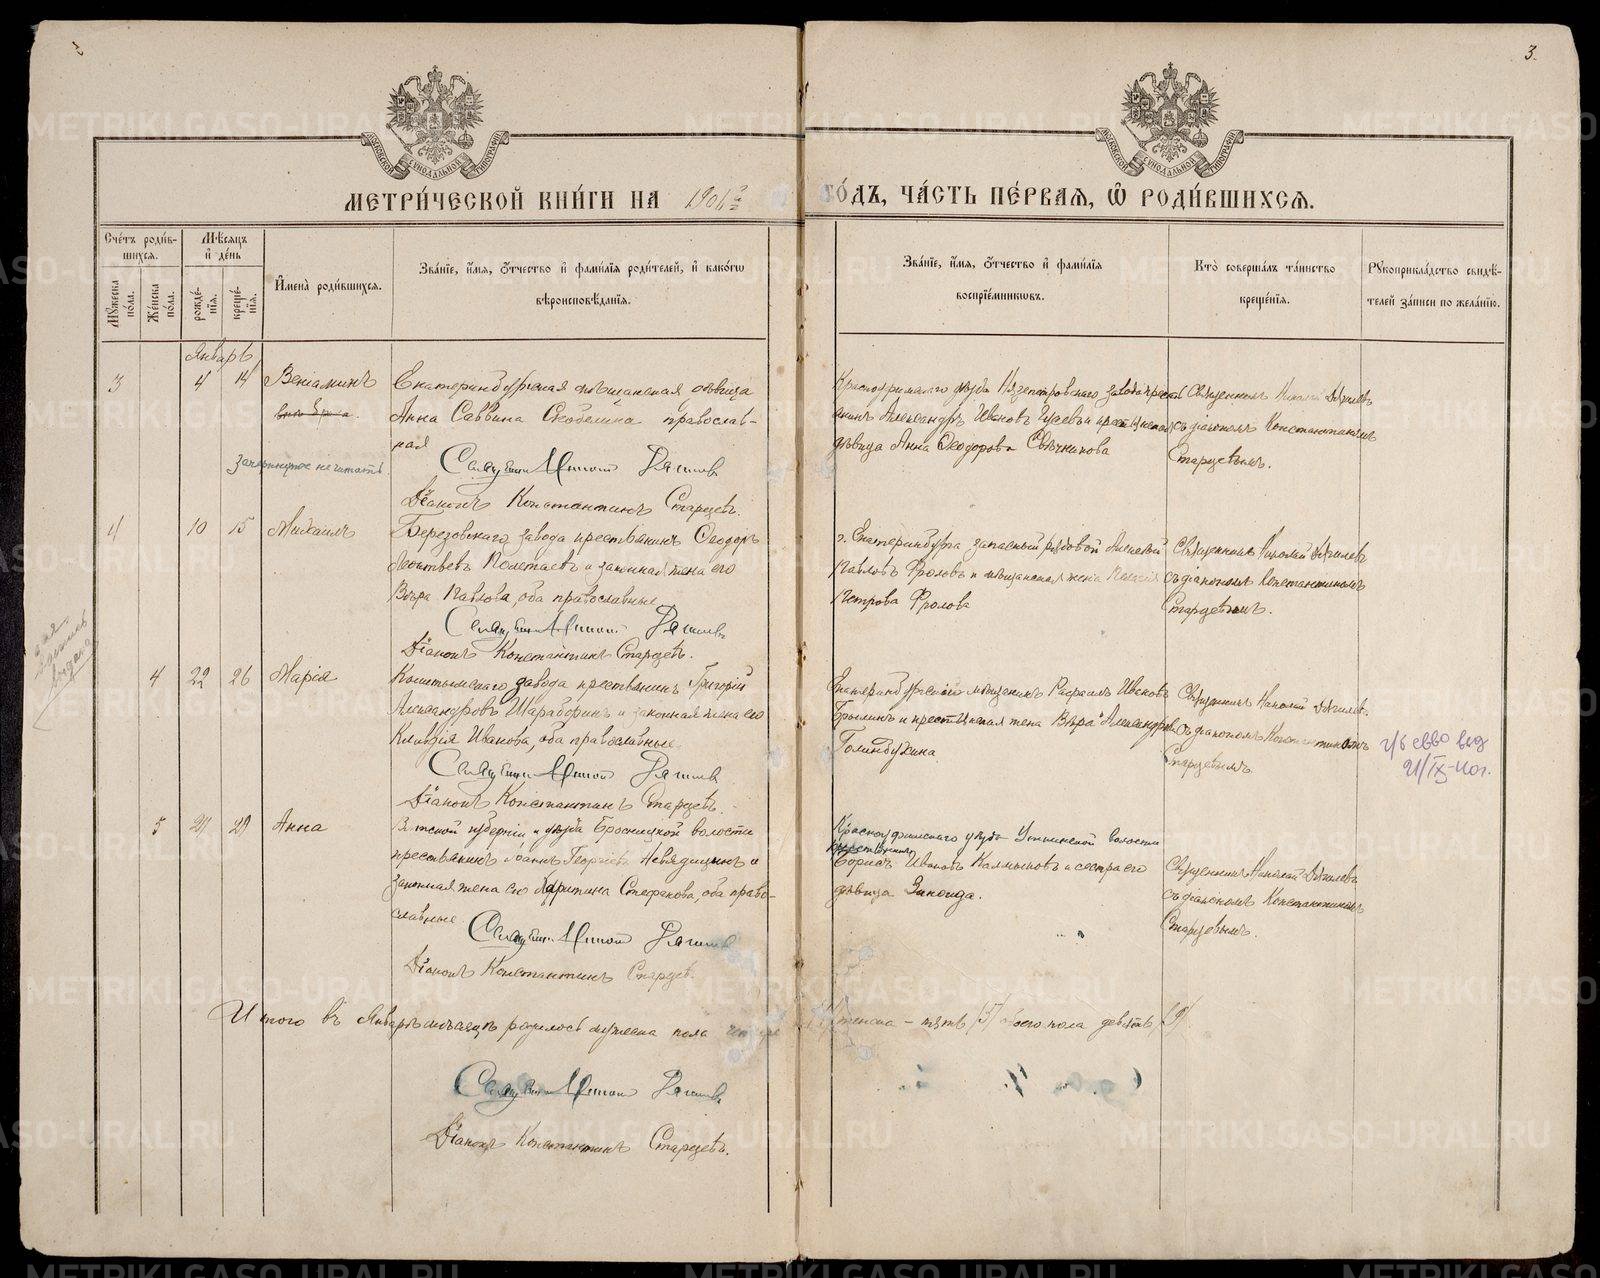 3.
МЕТРИ́ЧЕСКОЙ КНИ́ГИ НА 1901 ГО́ДЪ, ЧА́СТЬ ПЕ́РВАѦ, Ѡ РОДИ́ВШИХСѦ.
Сче́тъ роди́вшихсѧ.
Мꙋ́жеска по́ла.
Же́нска по́ла.
Мѣ́сѧцъ и҆ де́нь
рожде́нїѧ.
креще́нїѧ.
И҆мена̀ роди́вшихсѧ.
Зва́нїе, и҆́мѧ, ѻ҆́тчество и҆ фами́лїѧ роди́телей, и҆ како́гѡ вѣроисповѣ́данїѧ.
Зва́нїе, и҆́мѧ, ѻ҆́тчество и҆ фами́лїѧ воспрїе́мникѡвъ.
Кто̀ соверша́лъ та́инство креще́нїѧ.
Рꙋкоприкла́дство свидѣ́телей за́писи по жела́нїю.
Январь
3 4 14 Веніаминъ
Екатеринбургская мѣщанская дѣвица
Анна Саввина Скобелина православ-
ная
зачеркнутое не читать
Діаконъ Константинъ Старцевъ.
Красноуфимскаго уѣзда Нязепетровскаго завода крестья-
нинъ Александръ Ивановъ Гусевъ и крестьянская
дѣвица Анна Ѳеодорова Свѣчникова
Священникъ Николай Дягилевъ
съ діакономъ Константиномъ
Старцевымъ.
4 10 15 Михаилъ
Березовскаго завода крестьянинъ Ѳеодоръ
Леонтьевъ Полетаевъ и законная жена его
Вѣра Павлова, оба православные
Діаконъ Константинъ Старцевъ.
г. Екатеринбурга запасный рядовой Алексѣй
Павловъ Фроловъ и мѣщанская жена
Петрова Фролова
Священникъ Николай Дягилевъ
съ діакономъ Константиномъ
Старцевымъ.
4 22 26 Марія
Кыштымскаго завода крестьянинъ Григорій
Александровъ и законная жена его
Клавдія Иванова, оба православные
Діаконъ Константинъ Старцевъ.
Екатеринбургскій мѣщанинъ Рафаилъ Ивановъ
и крестьянская жена Вѣра Александрова
Голиндухина.
Священникъ Николай Дягилевъ
съ діакономъ Константиномъ
Старцевымъ.
5 27 29 Анна
Вятской губерніи и уѣзда волости
крестьянинъ Іоаннъ Георгіевъ и
законная жена его Харитина Стефанова, оба право-
славные
Діаконъ Константинъ Старцевъ.
Красноуфимскаго уѣзда волости
крестьянинъ
Борисъ Ивановъ Калмыковъ и сестра его
дѣвица Зинаида.
Священникъ Николай Дягилевъ
съ діакономъ Константиномъ
Старцевымъ.
Итого въ Январѣ мѣсяцѣ родилось мужеска пола женска – пять /5/ обоего пола девять /9/
Діаконъ Константинъ Старцевъ.
METRIKI.GASO-URAL.RU